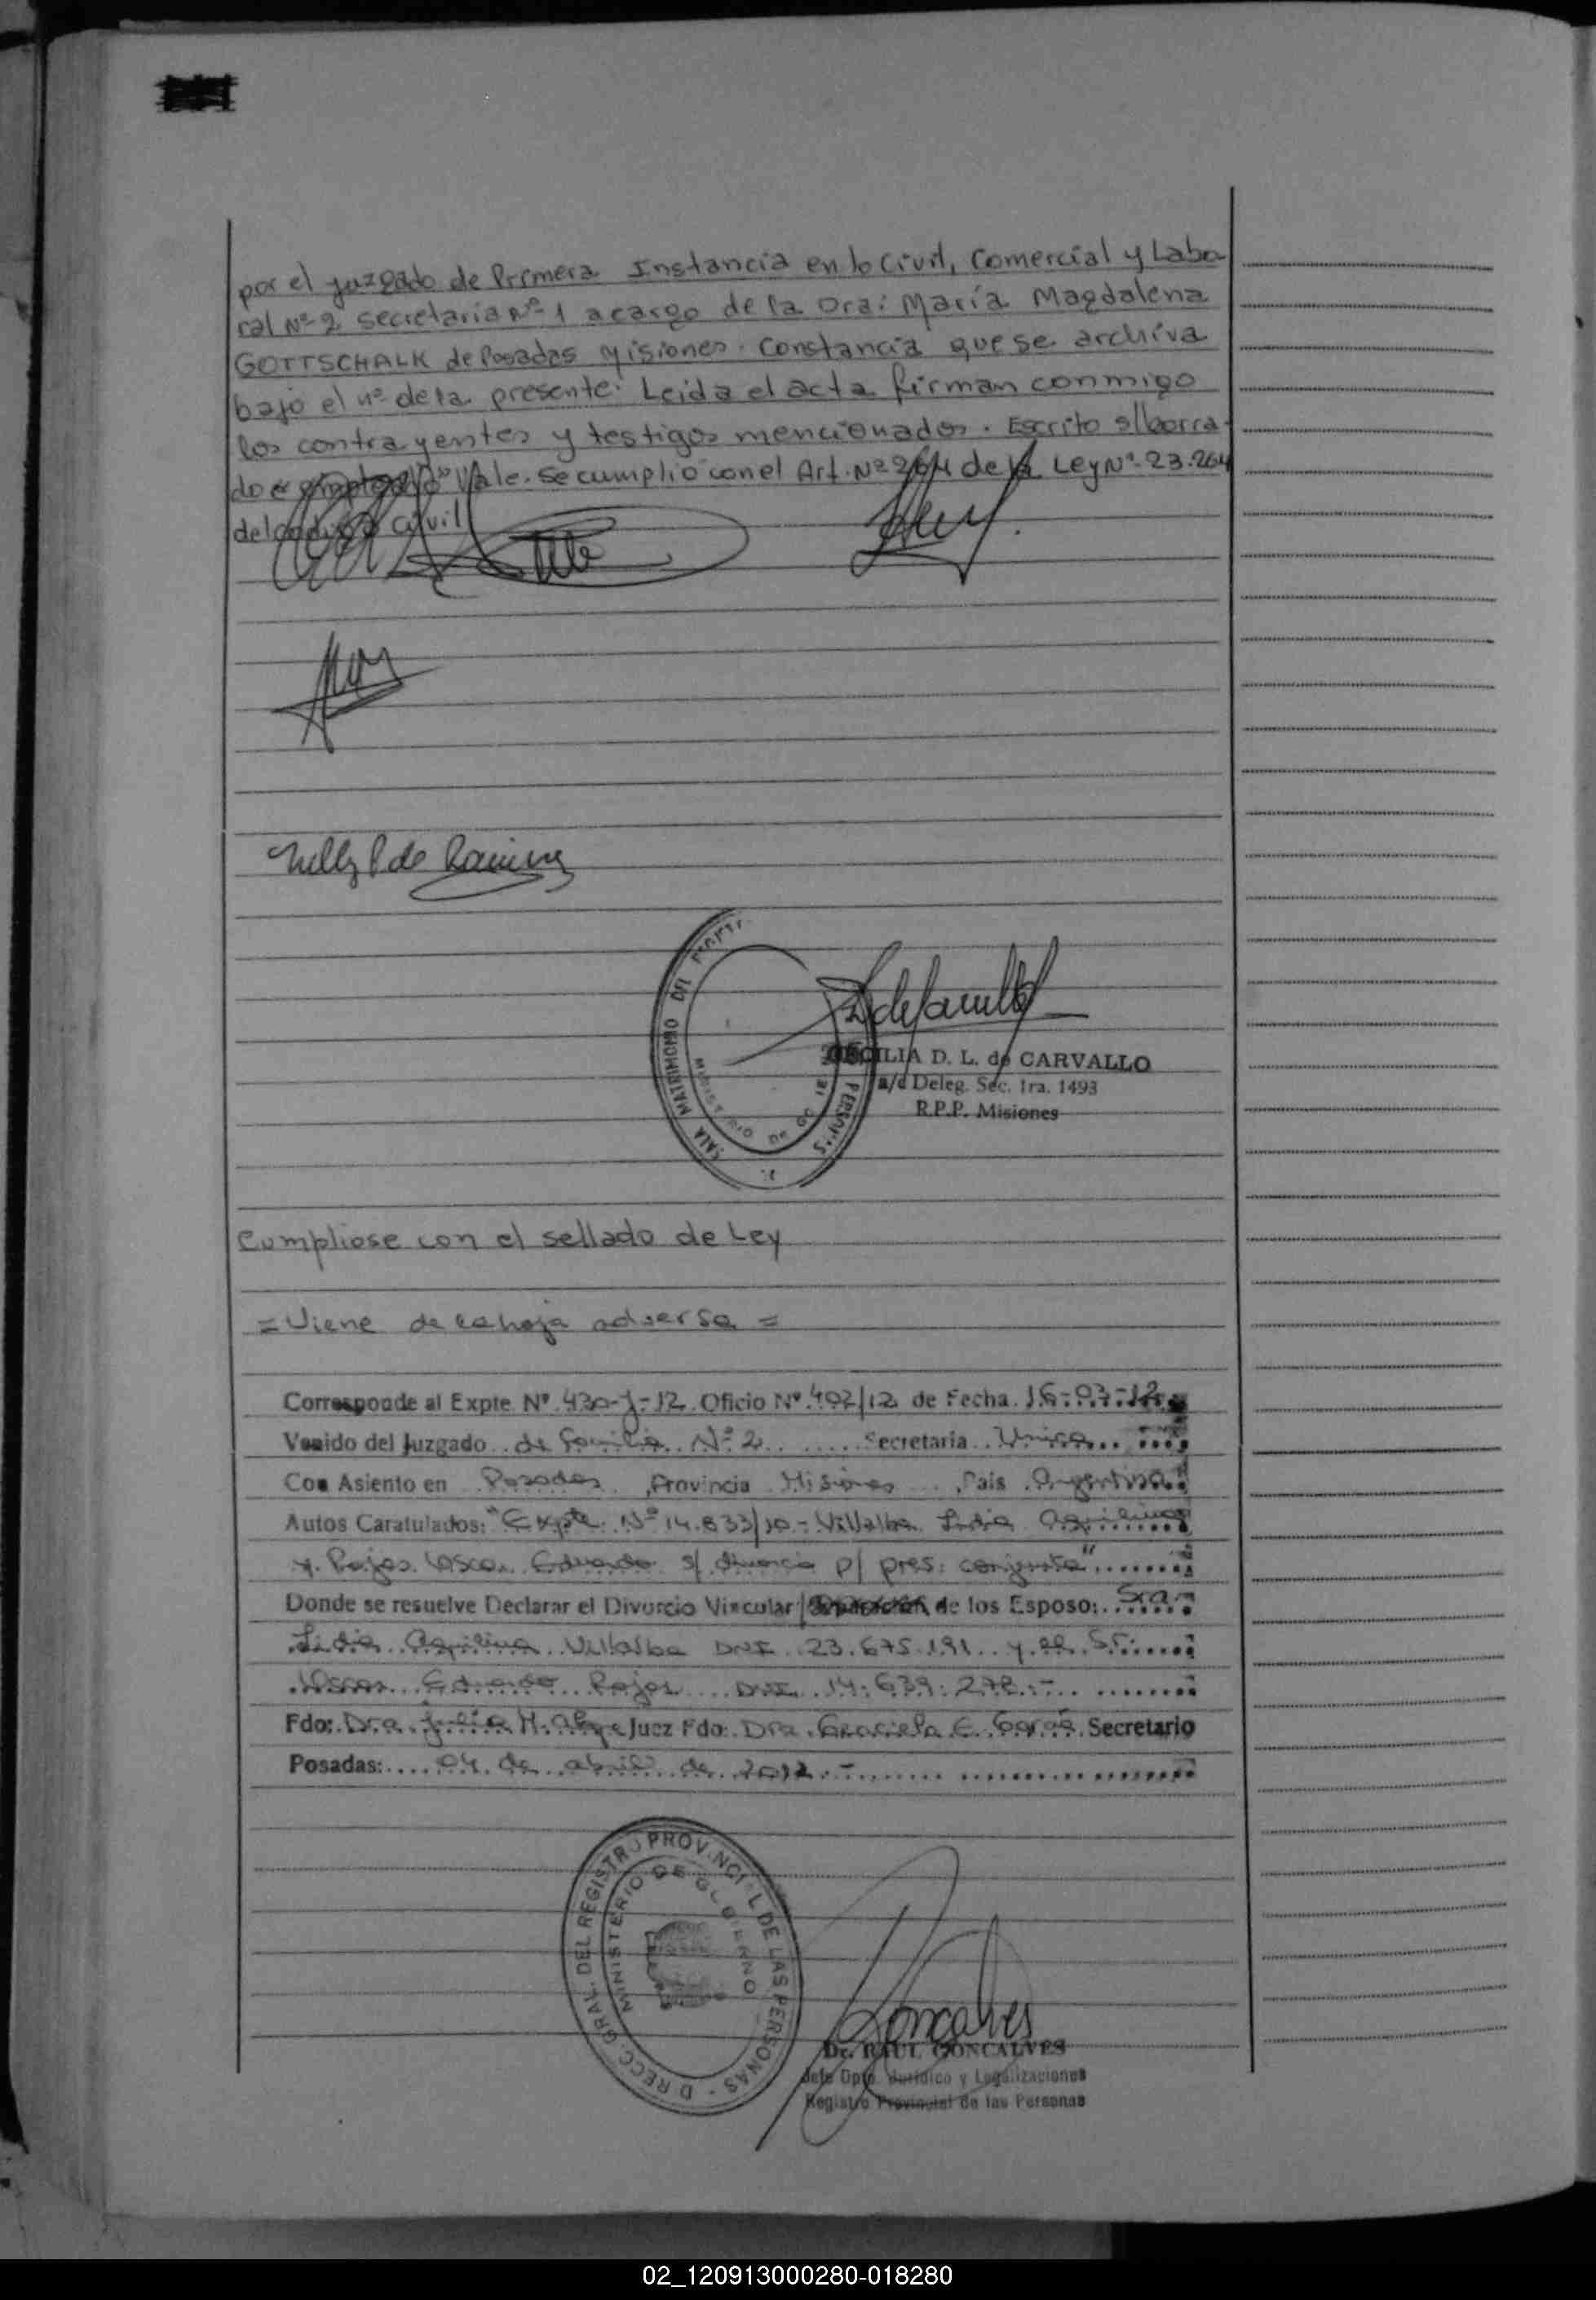 por el juzgado de Primera Instancia en lo Civil, Comercial y Labo
ral Nº 2 secretaria Nº 1 a cargo de la Dra: María Magdalena
GOTTSCHALK de Posadas Misiones. Constancia que se archiva
bajo el nº de la presente. Leida el acta firman conmigo
los contrayentes y testigos mencionados. Escrito s/borra
do Vale. Se cumplio con el Art. Nº 264 de la Ley Nº 23.264
del codigo civil
Nelly P de Ramirez
SALA MATRIMONIO DEL
MINISTERIO DE
CECILIA D. L. de CARVALLO
a/c Deleg. Sec. 1ra. 1493
R.P.P. Misiones
Cumpliose con el sellado de Ley
= Viene de la hoja adversa =
Corresponde al Expte. Nº 430-J-12 Oficio Nº 402/12 de Fecha 16-03-12
Venido del Juzgado de Familia Nº 2 Secretaria Unica
Con Asiento en Posadas Provincia Misiones Pais Argentina
Autos Caratulados: "Expte. Nº 14.833/10 - Villalba Lidia Aquilina
y Rojas Oscar Eduardo s/ divorcio p/ pres. conjunta"
Donde se resuelve Declarar el Divorcio Vincular / de los Esposo: Sra.
Lidia Aquilina Villalba DNI 23.675.191 y el Sr.
Oscar Eduardo Rojas DNI 14.639.272.-
Fdo: Dra. Julia H. Juez Fdo: Dra. Graciela E. Secretario
Posadas: 04 de abril de 2012.-
DIRECC. GRAL. DEL REGISTRO PROVINCIAL DE LAS PERSONAS
MINISTERIO DE GOBIERNO
Goncalves
Dr. RAUL GONCALVES
Jefe Dpto. Juridico y Legalizaciones
Registro Provincial de las Personas
02_120913000280-018280